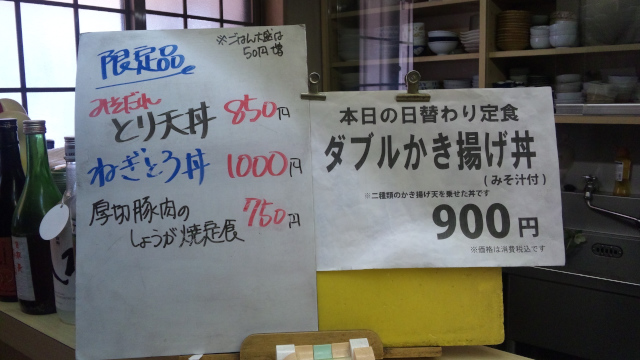 限定品
※ごはん大盛は
50円増
みそだれ
とり天丼 850円
ねぎとろ丼 1000円
厚切豚肉の
しょうが焼定食 750円
本日の日替わり定食
ダブルかき揚げ丼
(みそ汁付)
※二種類のかき揚げ天を乗せた丼です
900円
※価格は消費税込です